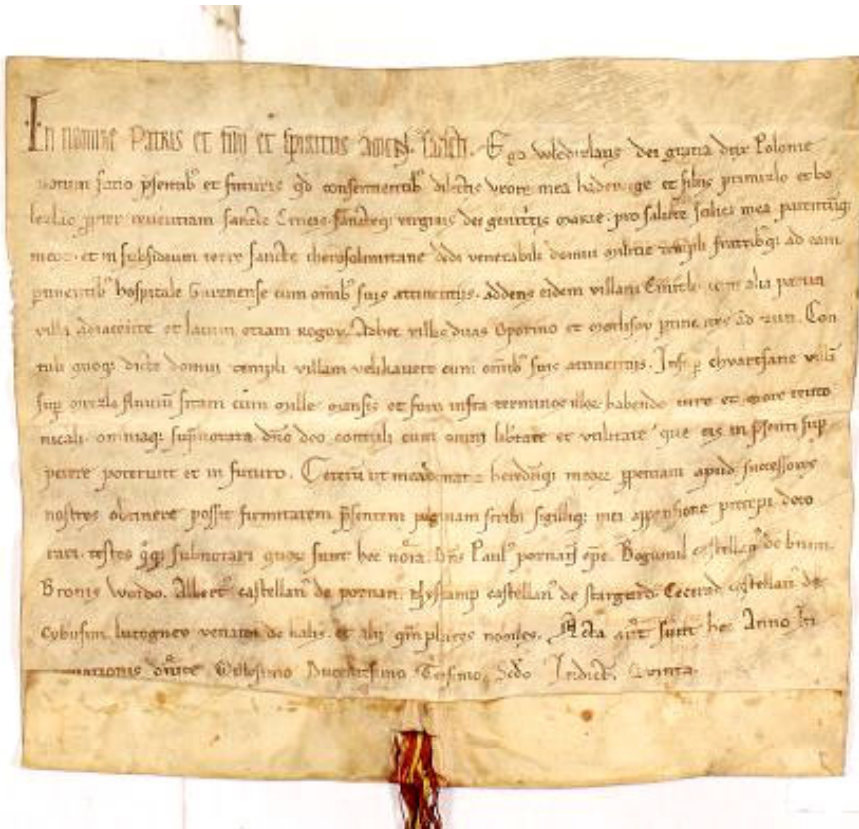 In nomine Patris et filii et spiritus Amen. sancti. Ego wlodizlaus dei gratia dux Polonie
notum facio psentib et futuris qd consentientib dilectis uxore mea hadewige et filiis primizlo et bo
lezlao propter reuerentiam sancte Crucis sancteq virginis dei genitricis marie pro salute
et in subsidium terre sancte dedi venerabili domui militie templi fratribq ad eam
ptinentib hospitale Gneznense cum omib suis attinentiis. addens eidem villam cum alia parua
villa adiacente et lacum etiam Rogov. Adhec villas duas Oporino et
tuli quoq dicte domui templi villam velikauetz cum omib suis attinentiis. chvartsane villa
sup fluuiu sitam cum mille mansis et foro infra terminos illos habendo iure et more teuto
nicali. omniaq sup notata dno deo contuli cum omni libtate et vtilitate que eis in psenti sup
petere poterunt et in futuro. Ceteru ut mea donatio heredumq meoz ppetuam apud successores
nostros obtinere possit firmitatem psentem paginam scribi sigilliq mei appensione precepi deco
rari. testes qq subnotari quoz sunt hec noia. Dns Paul poznan epc. Bogumil castellan de bnin.
Bronis woivo. Albert castellan de poznan. castellan de stargard. Cecerad castellan de
Cybusin. venator de kalis. et alii qm plures nobiles. Acta aut sunt hec Anno In
nationis dnice Millesimo Ducentesimo Tricesimo. Scdo Indict. Quinta.